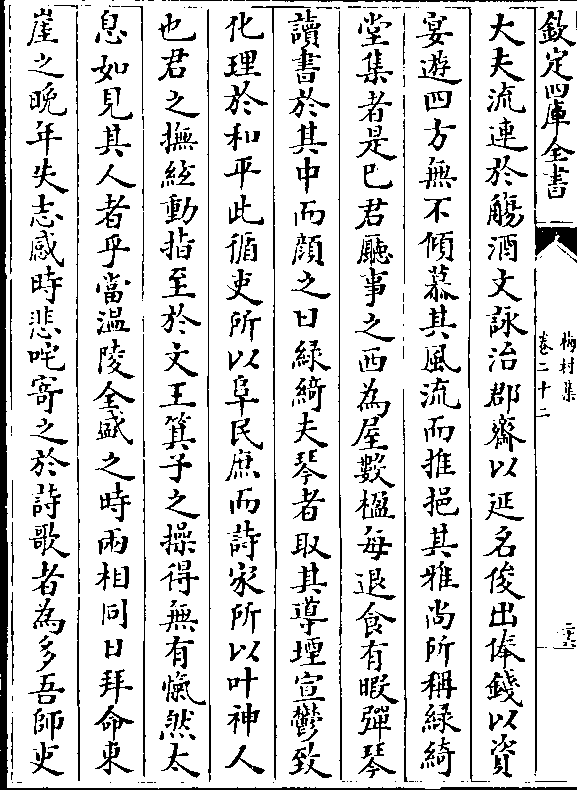 欽定四庫全書
梅村集
卷二十二
大夫流連於觴酒文詠治郡齋以延名俊出俸錢以資
宴遊四方無不傾慕其風流而推挹其雅尚所稱綠綺
堂集者是已君廳事之西為屋數楹每退食有暇彈琴
讀書於其中而顔之曰綠綺夫琴者取其導堙宣鬱致
化理於和平此循吏所以阜民庶而詩家所以叶神人
也君之撫絃動指至於文王箕子之操得無有愾然太
息如見其人者乎當温陵全盛之時兩相同日拜命東
崖之晚年失志感時悲咤寄之於詩歌者為多吾師吏